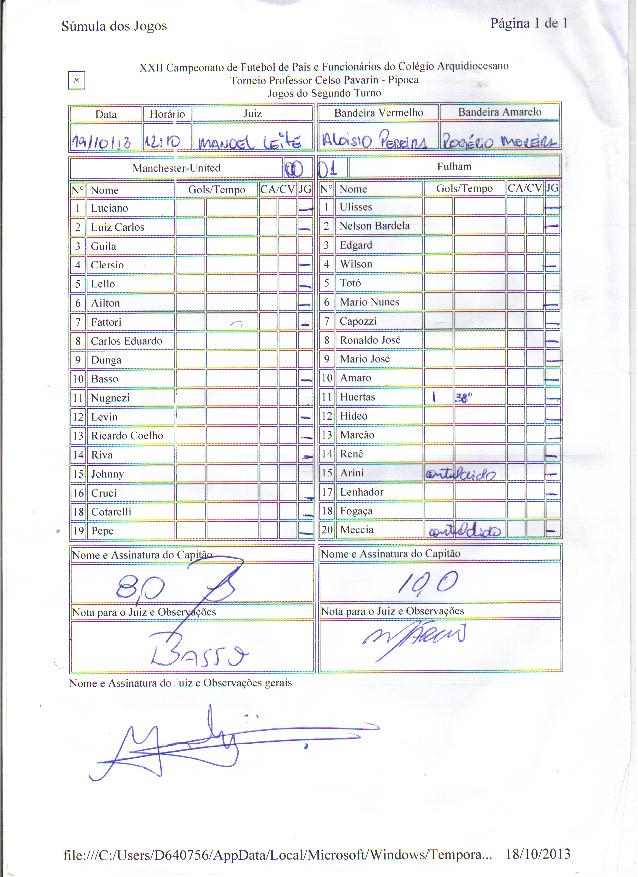 Súmula dos Jogos Página 1 de 1
XXII Campeonato de Futebol de Pais e Funcionários do Colégio Arquidiocesano
Torneio Professor Celso Pavarin - Pipoca
Jogos do Segundo Turno
Data Horário Juiz Bandeira Vermelho Bandeira Amarelo
19/10/13 12:10 MANOEL LEITE ALOISIO PEREIRA ROGÉRIO MOREIRA
Manchester-United 00 01 Fulham
Nº Nome Gols/Tempo CA/CV JG Nº Nome Gols/Tempo CA/CV JG
1 Luciano — 1 Ulisses —
2 Luiz Carlos — 2 Nelson Bardela —
3 Guila 3 Edgard
4 Clersio — 4 Wilson —
5 Lello — 5 Totó
6 Ailton — 6 Mario Nunes —
7 Fattori — 7 Capozzi —
8 Carlos Eduardo 8 Ronaldo José —
9 Dunga 9 Mario José —
10 Basso — 10 Amaro —
11 Nugnezi — 11 Huertas 1 38" —
12 Levin — 12 Hideo —
13 Ricardo Coelho — 13 Marcão —
14 Riva — 14 Renê —
15 Johnny 15 Arini contundido —
16 Cruci — 17 Lenhador —
18 Cotarelli — 18 Fogaça
19 Pepe — 20 Meccia contundido —
Nome e Assinatura do Capitão Nome e Assinatura do Capitão
8,0 10,0
Nota para o Juiz e Observações Nota para o Juiz e Observações
BASSO
Nome e Assinatura do Juiz e Observações gerais
file:///C:/Users/D640756/AppData/Local/Microsoft/Windows/Tempora... 18/10/2013